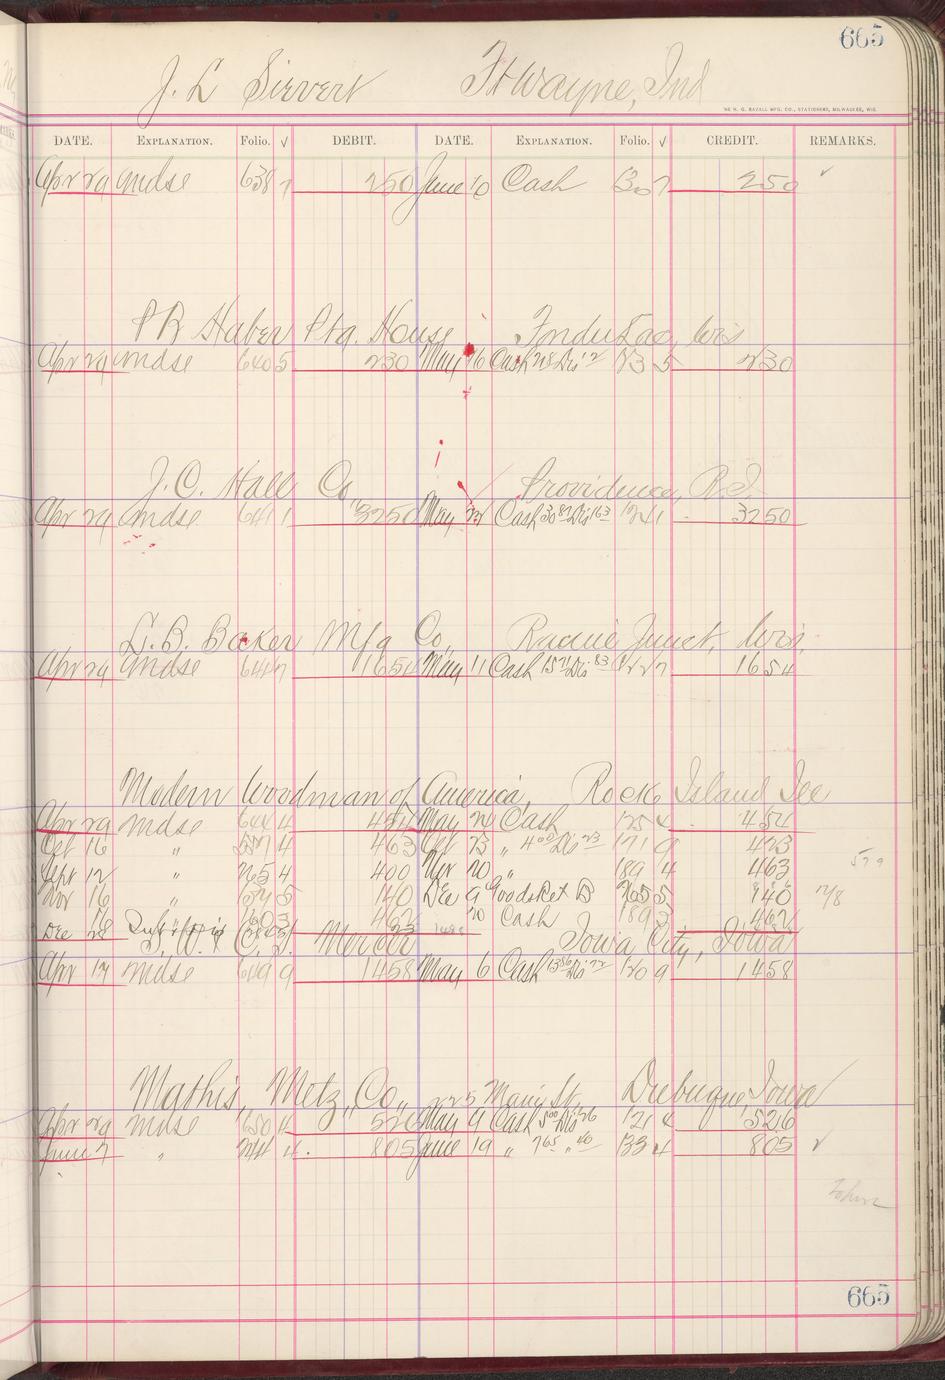 665
J. L Sievert Ft Wayne, Ind
THE H. G. RAZALL MFG. CO., STATIONERS, MILWAUKEE, WIS.
DATE. EXPLANATION. Folio. √ DEBIT. DATE. EXPLANATION. Folio. √ CREDIT. REMARKS.
Apr 29 Mdse 638 7 250 June 10 Cash 130 7 250 ✓
P R Haber Ptg. House Fondu Lac, Wis
Apr 29 Mdse 640 5 230 May 16 Cash 228 Dis 2 123 5 230
J. C. Hall Co., Providence, R.I.
Apr 29 Mdse 641 1 3250 May 24 Cash 3087 Dis 163 124 1 3250
L. B. Baker Mfg Co., Racine Junct, Wis,
Apr 29 Mdse 644 7 1654 May 11 Cash 1571 Dis 83 122 7 1654
Modern Woodman of America, Rock Island Ill
Apr 29 Mdse 644 4 454 May 24 Cash 125 4 454
Oct 16 " 4 463 Oct 23 " 400 Dis 23 171 9 423
Sept 12 " 265 4 400 Nov 20 " 189 4 463 579
Nov 16 " 5 140 Dec 9 Goods Ret B 265 5 140
16 603 462 20 Cash 189 3 462
Dec 28 23
Mercer Iowa City, Iowa
Apr 17 Mdse 649 9 1458 May 6 Cash 1386 Dis 72 120 9 1458
Mathis, Metz, Co., 225 Main St, Dubuque, Iowa
Apr 29 Mdse 650 4 526 May 9 Cash 500 Dis 26 121 4 526
June 7 " 244 4 805 June 19 " 765 " 40 133 4 805 ✓
665